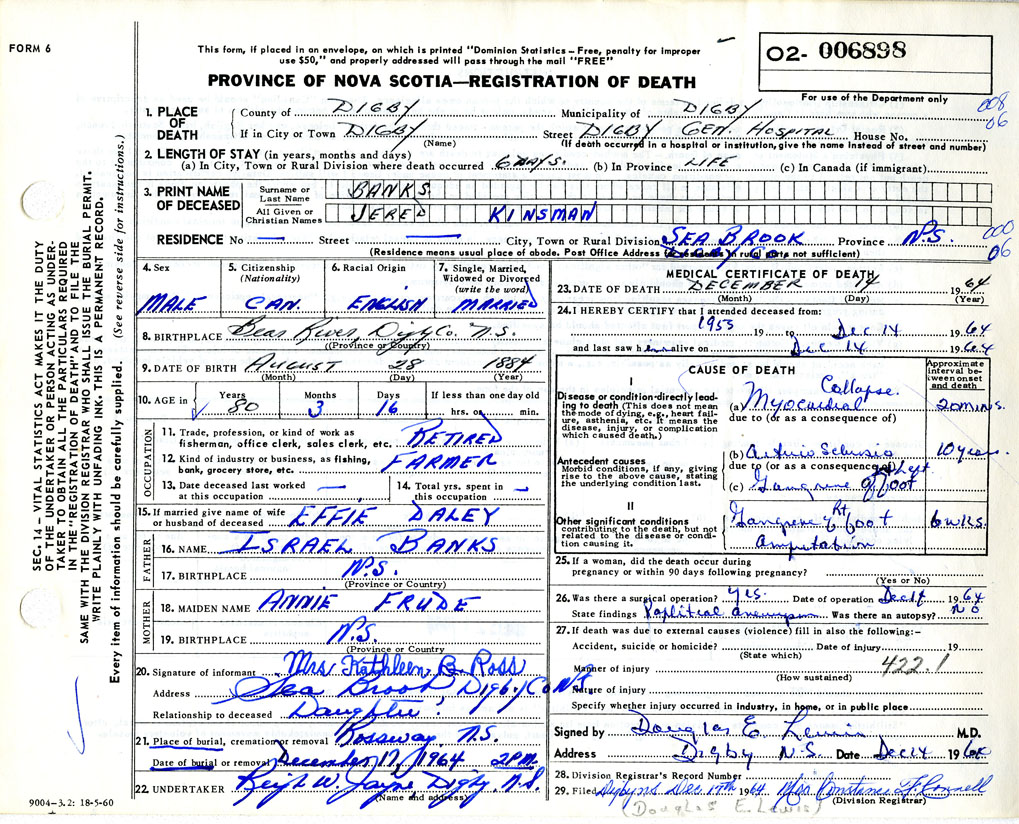 FORM 6
This form, if placed in an envelope, on which is printed "Dominion Statistics – Free, penalty for improper
use $50," and properly addressed will pass through the mail "FREE"
O2- 006898
PROVINCE OF NOVA SCOTIA—REGISTRATION OF DEATH
For use of the Department only
008
06
1. PLACE OF DEATH
County of DIGBY Municipality of DIGBY
If in City or Town DIGBY Street DIGBY GEN. HOSPITAL House No.
(Name) (If death occurred in a hospital or institution, give the name instead of street and number)
2. LENGTH OF STAY (in years, months and days)
(a) In City, Town or Rural Division where death occurred 6 DAYS. (b) In Province LIFE (c) In Canada (if immigrant)
3. PRINT NAME OF DECEASED
Surname or Last Name BANKS
All Given or Christian Names JERED KINSMAN
RESIDENCE No — Street — City, Town or Rural Division SEA BROOK Province N.S.
000
06
(Residence means usual place of abode. Post Office Address for residents in rural parts not sufficient)
4. Sex
MALE
5. Citizenship
(Nationality)
CAN.
6. Racial Origin
ENGLISH
7. Single, Married, Widowed or Divorced
(write the word)
MARRIED
8. BIRTHPLACE Bear River, Digby Co. N.S.
(Province or Country)
9. DATE OF BIRTH AUGUST 28 1884
(Month) (Day) (Year)
10. AGE in Years 80 Months 3 Days 16 If less than one day old
hrs. or min.
OCCUPATION
11. Trade, profession, or kind of work as
fisherman, office clerk, sales clerk, etc. RETIRED
12. Kind of industry or business, as fishing,
bank, grocery store, etc. FARMER
13. Date deceased last worked
at this occupation —
14. Total yrs. spent in
this occupation —
15. If married give name of wife
or husband of deceased EFFIE DALEY
FATHER
16. NAME ISRAEL BANKS
17. BIRTHPLACE N.S.
(Province or Country)
MOTHER
18. MAIDEN NAME ANNIE FRUDE
19. BIRTHPLACE N.S.
(Province or Country)
20. Signature of informant Mrs Kathleen B. Ross
Address Sea Brook, Digby Co N.S
Relationship to deceased Daughter
21. Place of burial, cremation or removal Rossway N.S.
Date of burial or removal December 17, 1964 2 PM.
22. UNDERTAKER W. Jayne Digby N.S.
(Name and address)
9004-3.2: 18-5-60
MEDICAL CERTIFICATE OF DEATH
23. DATE OF DEATH DECEMBER 14 1964
(Month) (Day) (Year)
24. I HEREBY CERTIFY that I attended deceased from:
1953 19 to Dec 14 1964
and last saw him alive on Dec 14 1964
CAUSE OF DEATH
Approximate interval between onset and death
I
Disease or condition directly leading to death (This does not mean the mode of dying, e.g., heart failure, asthenia, etc. It means the disease, injury, or complication which caused death.)
(a) Myocardial Collapse. 20 mins.
due to (or as a consequence of)
Antecedent causes
Morbid conditions, if any, giving rise to the above cause, stating the underlying condition last.
(b) 10 years.
due to (or as a consequence of)
(c) Gangrene of Left foot
II
Other significant conditions
contributing to the death, but not related to the disease or condition causing it.
Gangrene of Rt foot 6 wks.
Amputation
25. If a woman, did the death occur during
pregnancy or within 90 days following pregnancy?
(Yes or No)
26. Was there a surgical operation? yes. Date of operation Dec 14 1964
State findings Popliteal aneurysm Was there an autopsy? NO
27. If death was due to external causes (violence) fill in also the following:–
Accident, suicide or homicide? Date of injury 19
(State which)
422.1
Manner of injury
(How sustained)
Nature of injury
Specify whether injury occurred in industry, in home, or in public place
Signed by Douglas E. Lewis M.D.
Address Digby N.S. Date Dec 14 1964
28. Division Registrar's Record Number
29. Filed Dec 17th 1964 Mrs Constance F. Connell
(Division Registrar)
(Douglas E. Lewis)
SEC. 14 – VITAL STATISTICS ACT MAKES IT THE DUTY
OF THE UNDERTAKER OR PERSON ACTING AS UNDER-
TAKER TO OBTAIN ALL THE PARTICULARS REQUIRED
IN THE "REGISTRATION OF DEATH" AND TO FILE THE
SAME WITH THE DIVISION REGISTRAR WHO SHALL ISSUE THE BURIAL PERMIT.
WRITE PLAINLY WITH UNFADING INK. THIS IS A PERMANENT RECORD.
Every item of information should be carefully supplied. (See reverse side for instructions.)